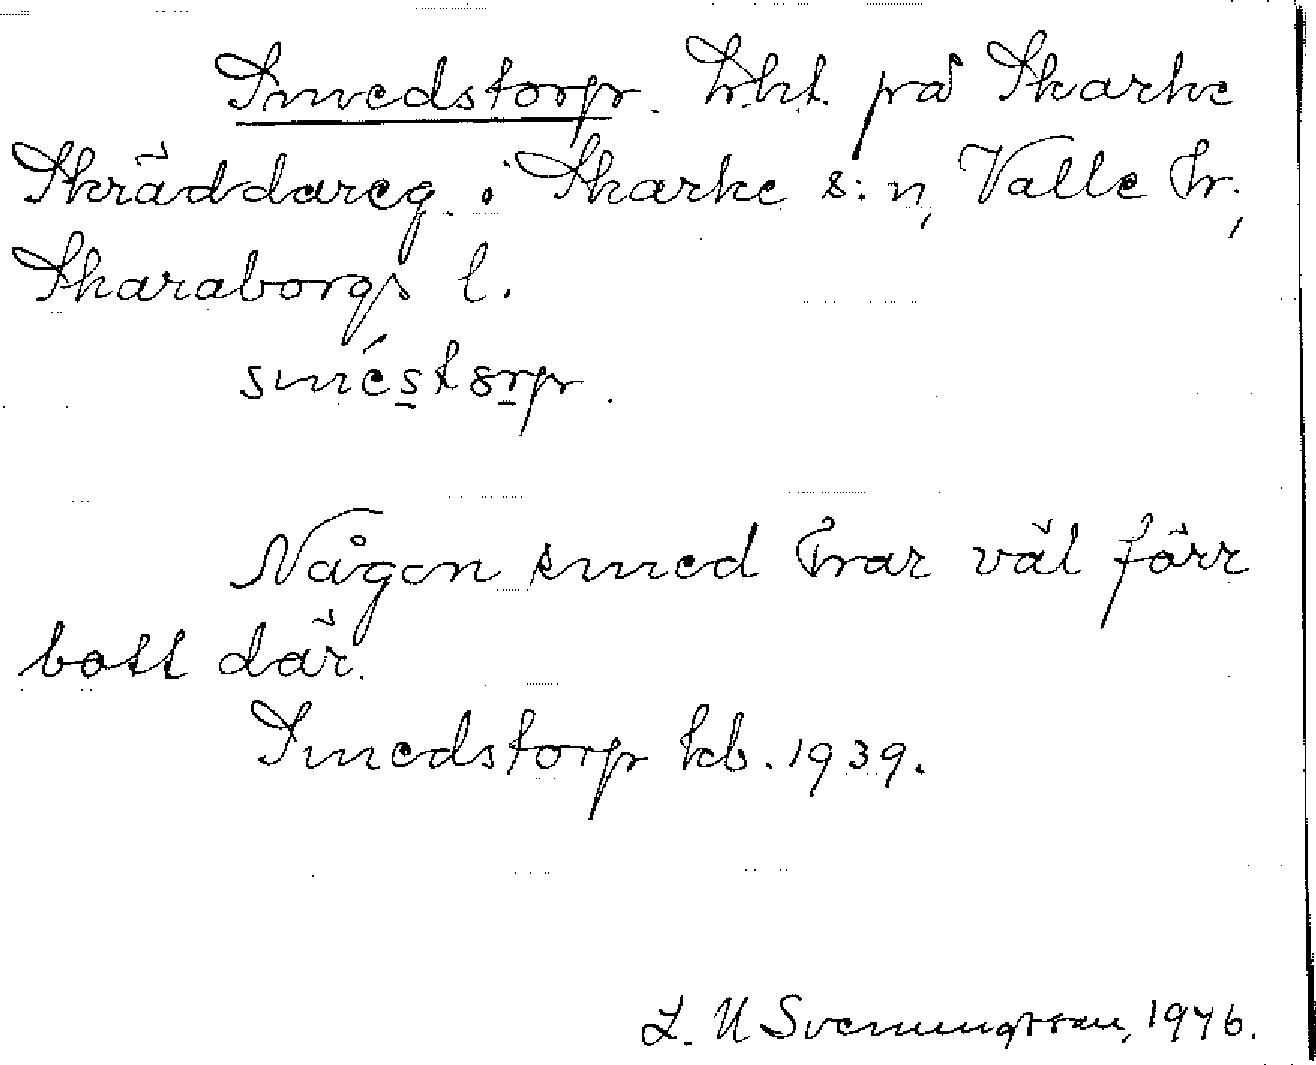 Smedstorp. Lht. på Skarke
Skräddareg. i Skarke s:n, Valle hr,
Skaraborgs l.
sméstorp.
Någon smed har väl förr
bott där.
Smedstorp kb. 1939.
L. U Svenungsson, 1946.